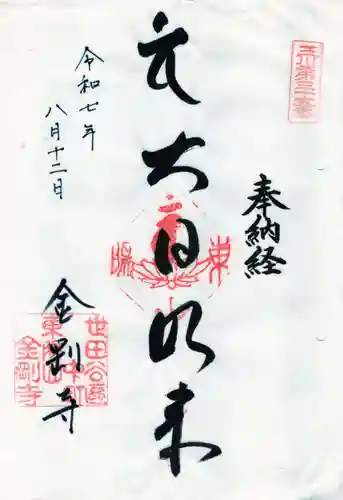 玉川第三十三番
奉納経
大日如来
東
臨
令和七年
八月十二日
金剛寺
世田谷区
中町
金剛寺